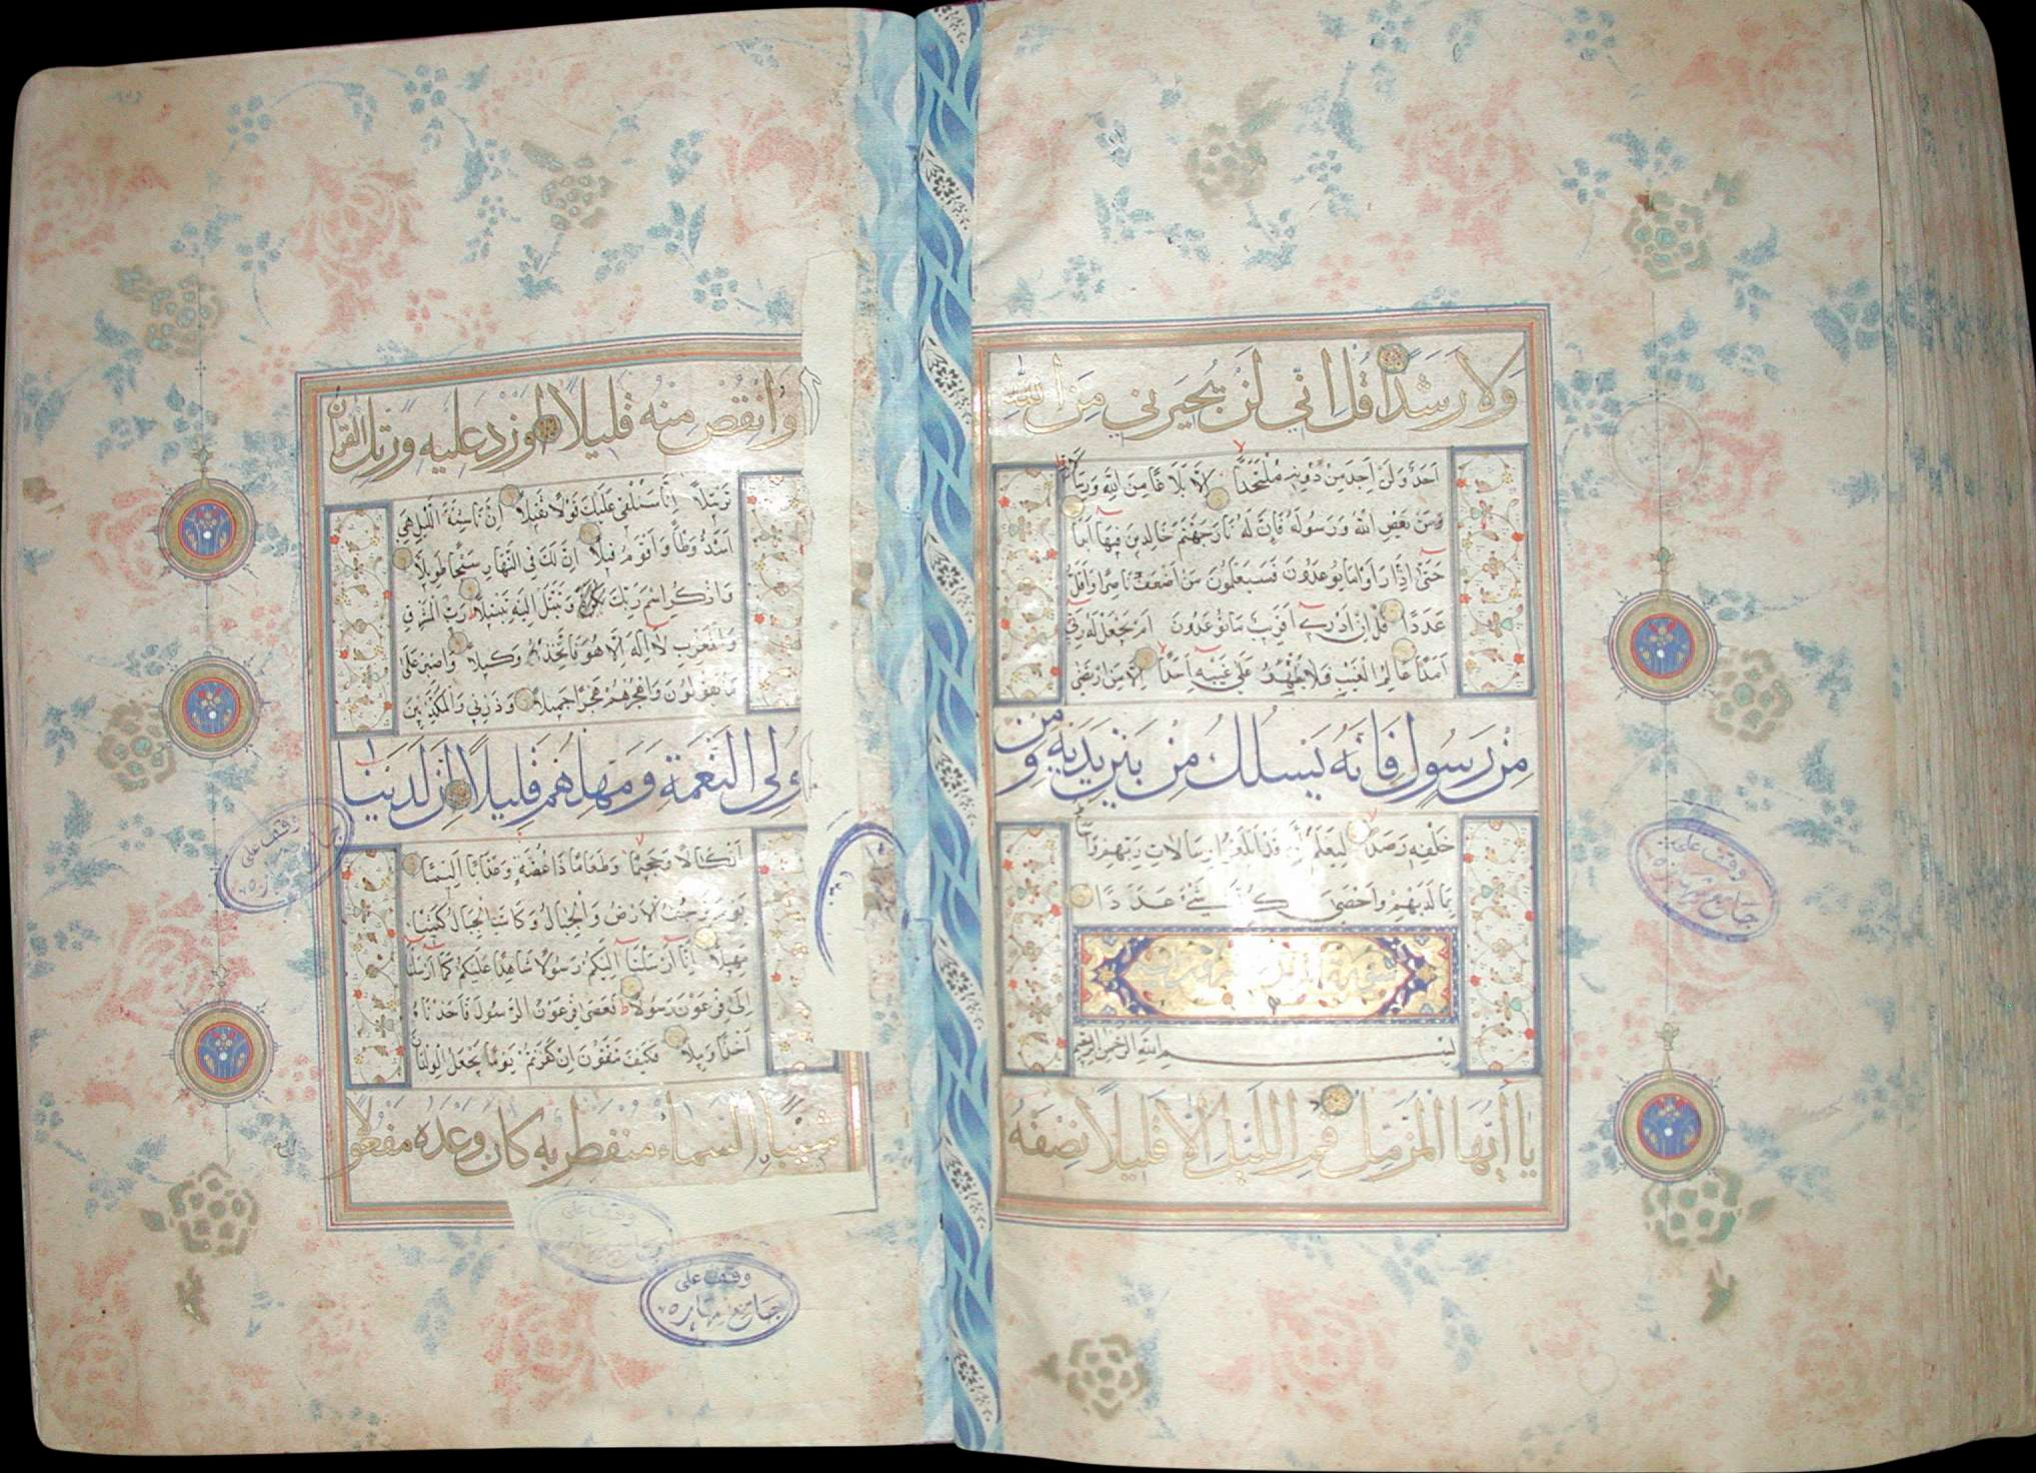 ولا رشدا قل اني لن يجيرني من الله
احد ولن اجد من دونه ملتحدا الا بلاغا من الله ورسالاته
ومن يعص الله ورسوله فان له نار جهنم خالدين فيها ابدا
حتى اذا راوا ما يوعدون فسيعلمون من اضعف ناصرا واقل
عددا قل ان ادري اقريب ما توعدون ام يجعل له ربي
امدا عالم الغيب فلا يظهر على غيبه احدا الا من ارتضى
من رسول فانه يسلك من بين يديه ومن
خلفه رصدا ليعلم ان قد ابلغوا رسالات ربهم واحاط
بما لديهم واحصى كل شيء عددا
سورة المزمل
بسم الله الرحمن الرحيم
يا ايها المزمل قم الليل الا قليلا نصفه
وقف على
جامع
او انقص منه قليلا او زد عليه ورتل القرآن
ترتيلا انا سنلقي عليك قولا ثقيلا ان ناشئة الليل هي
اشد وطأ واقوم قيلا ان لك في النهار سبحا طويلا
واذكر اسم ربك وتبتل اليه تبتيلا رب المشرق
والمغرب لا اله الا هو فاتخذه وكيلا واصبر على
ما يقولون واهجرهم هجرا جميلا وذرني والمكذبين
اولي النعمة ومهلهم قليلا ان لدينا
انكالا وجحيما وطعاما ذا غصة وعذابا اليما
يوم ترجف الارض والجبال وكانت الجبال كثيبا
مهيلا انا ارسلنا اليكم رسولا شاهدا عليكم كما ارسلنا
الى فرعون رسولا فعصى فرعون الرسول فاخذناه
اخذا وبيلا فكيف تتقون ان كفرتم يوما يجعل الولدان
شيبا السماء منفطر به كان وعده مفعولا
وقف على
وقف على
وقف على
جامع